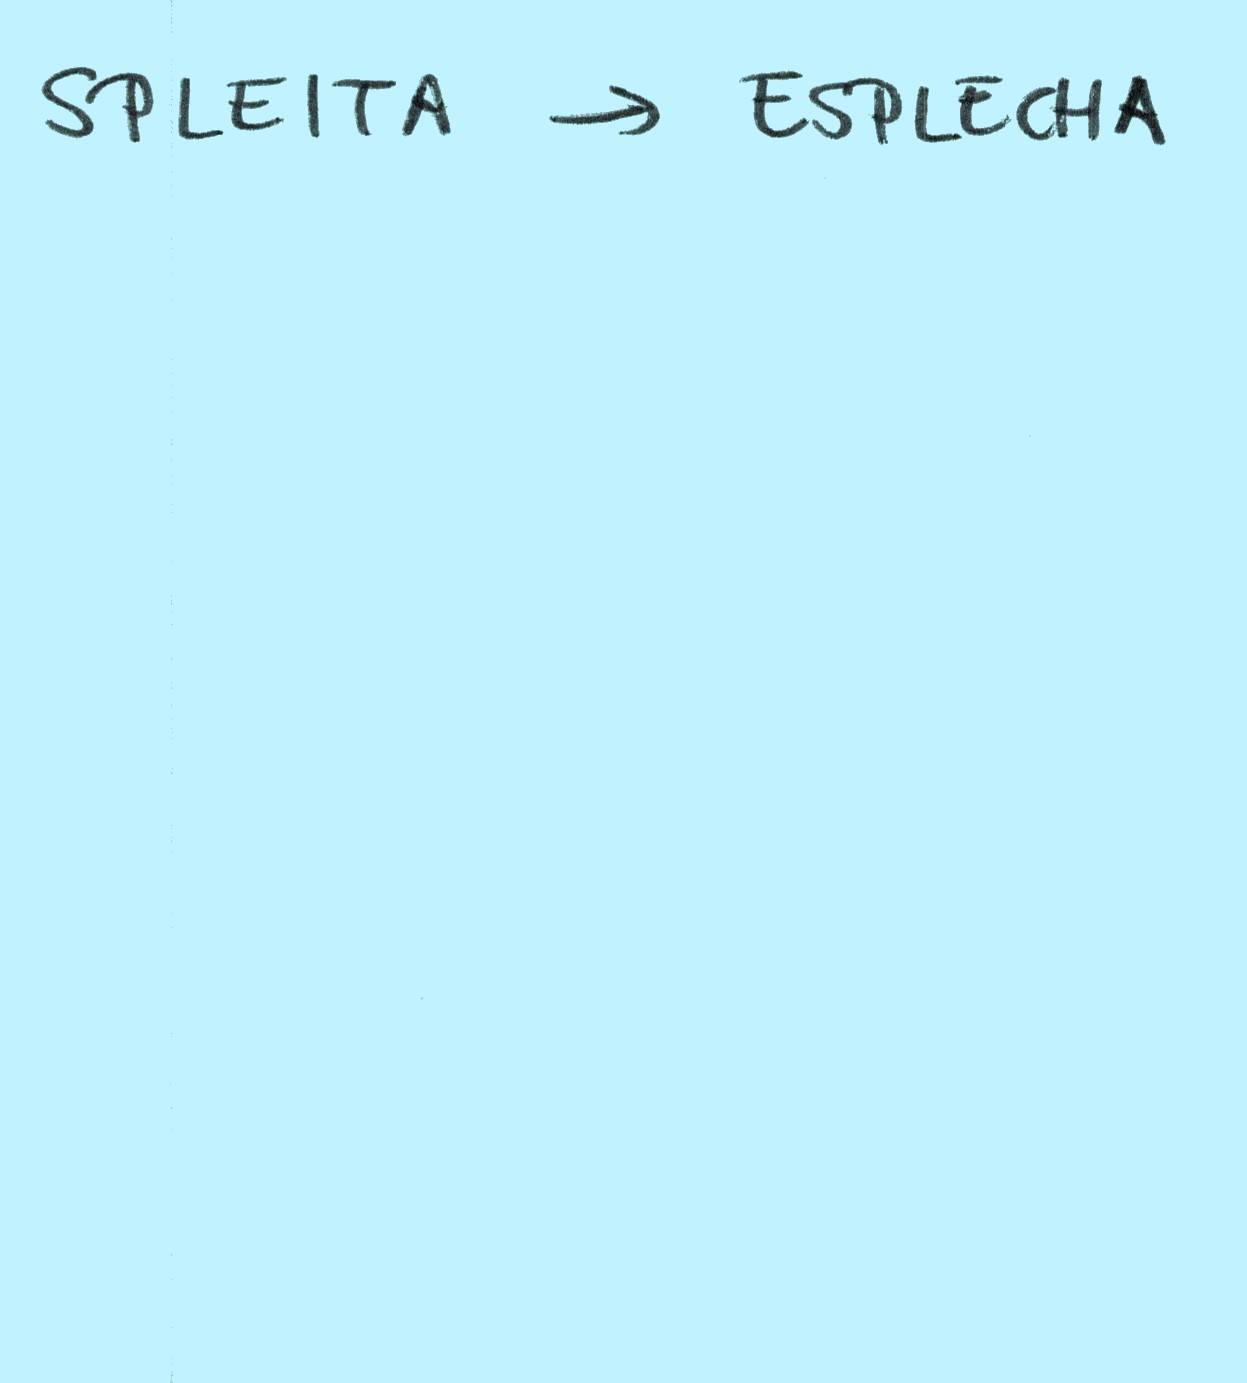 SPLEITA → ESPLECHA